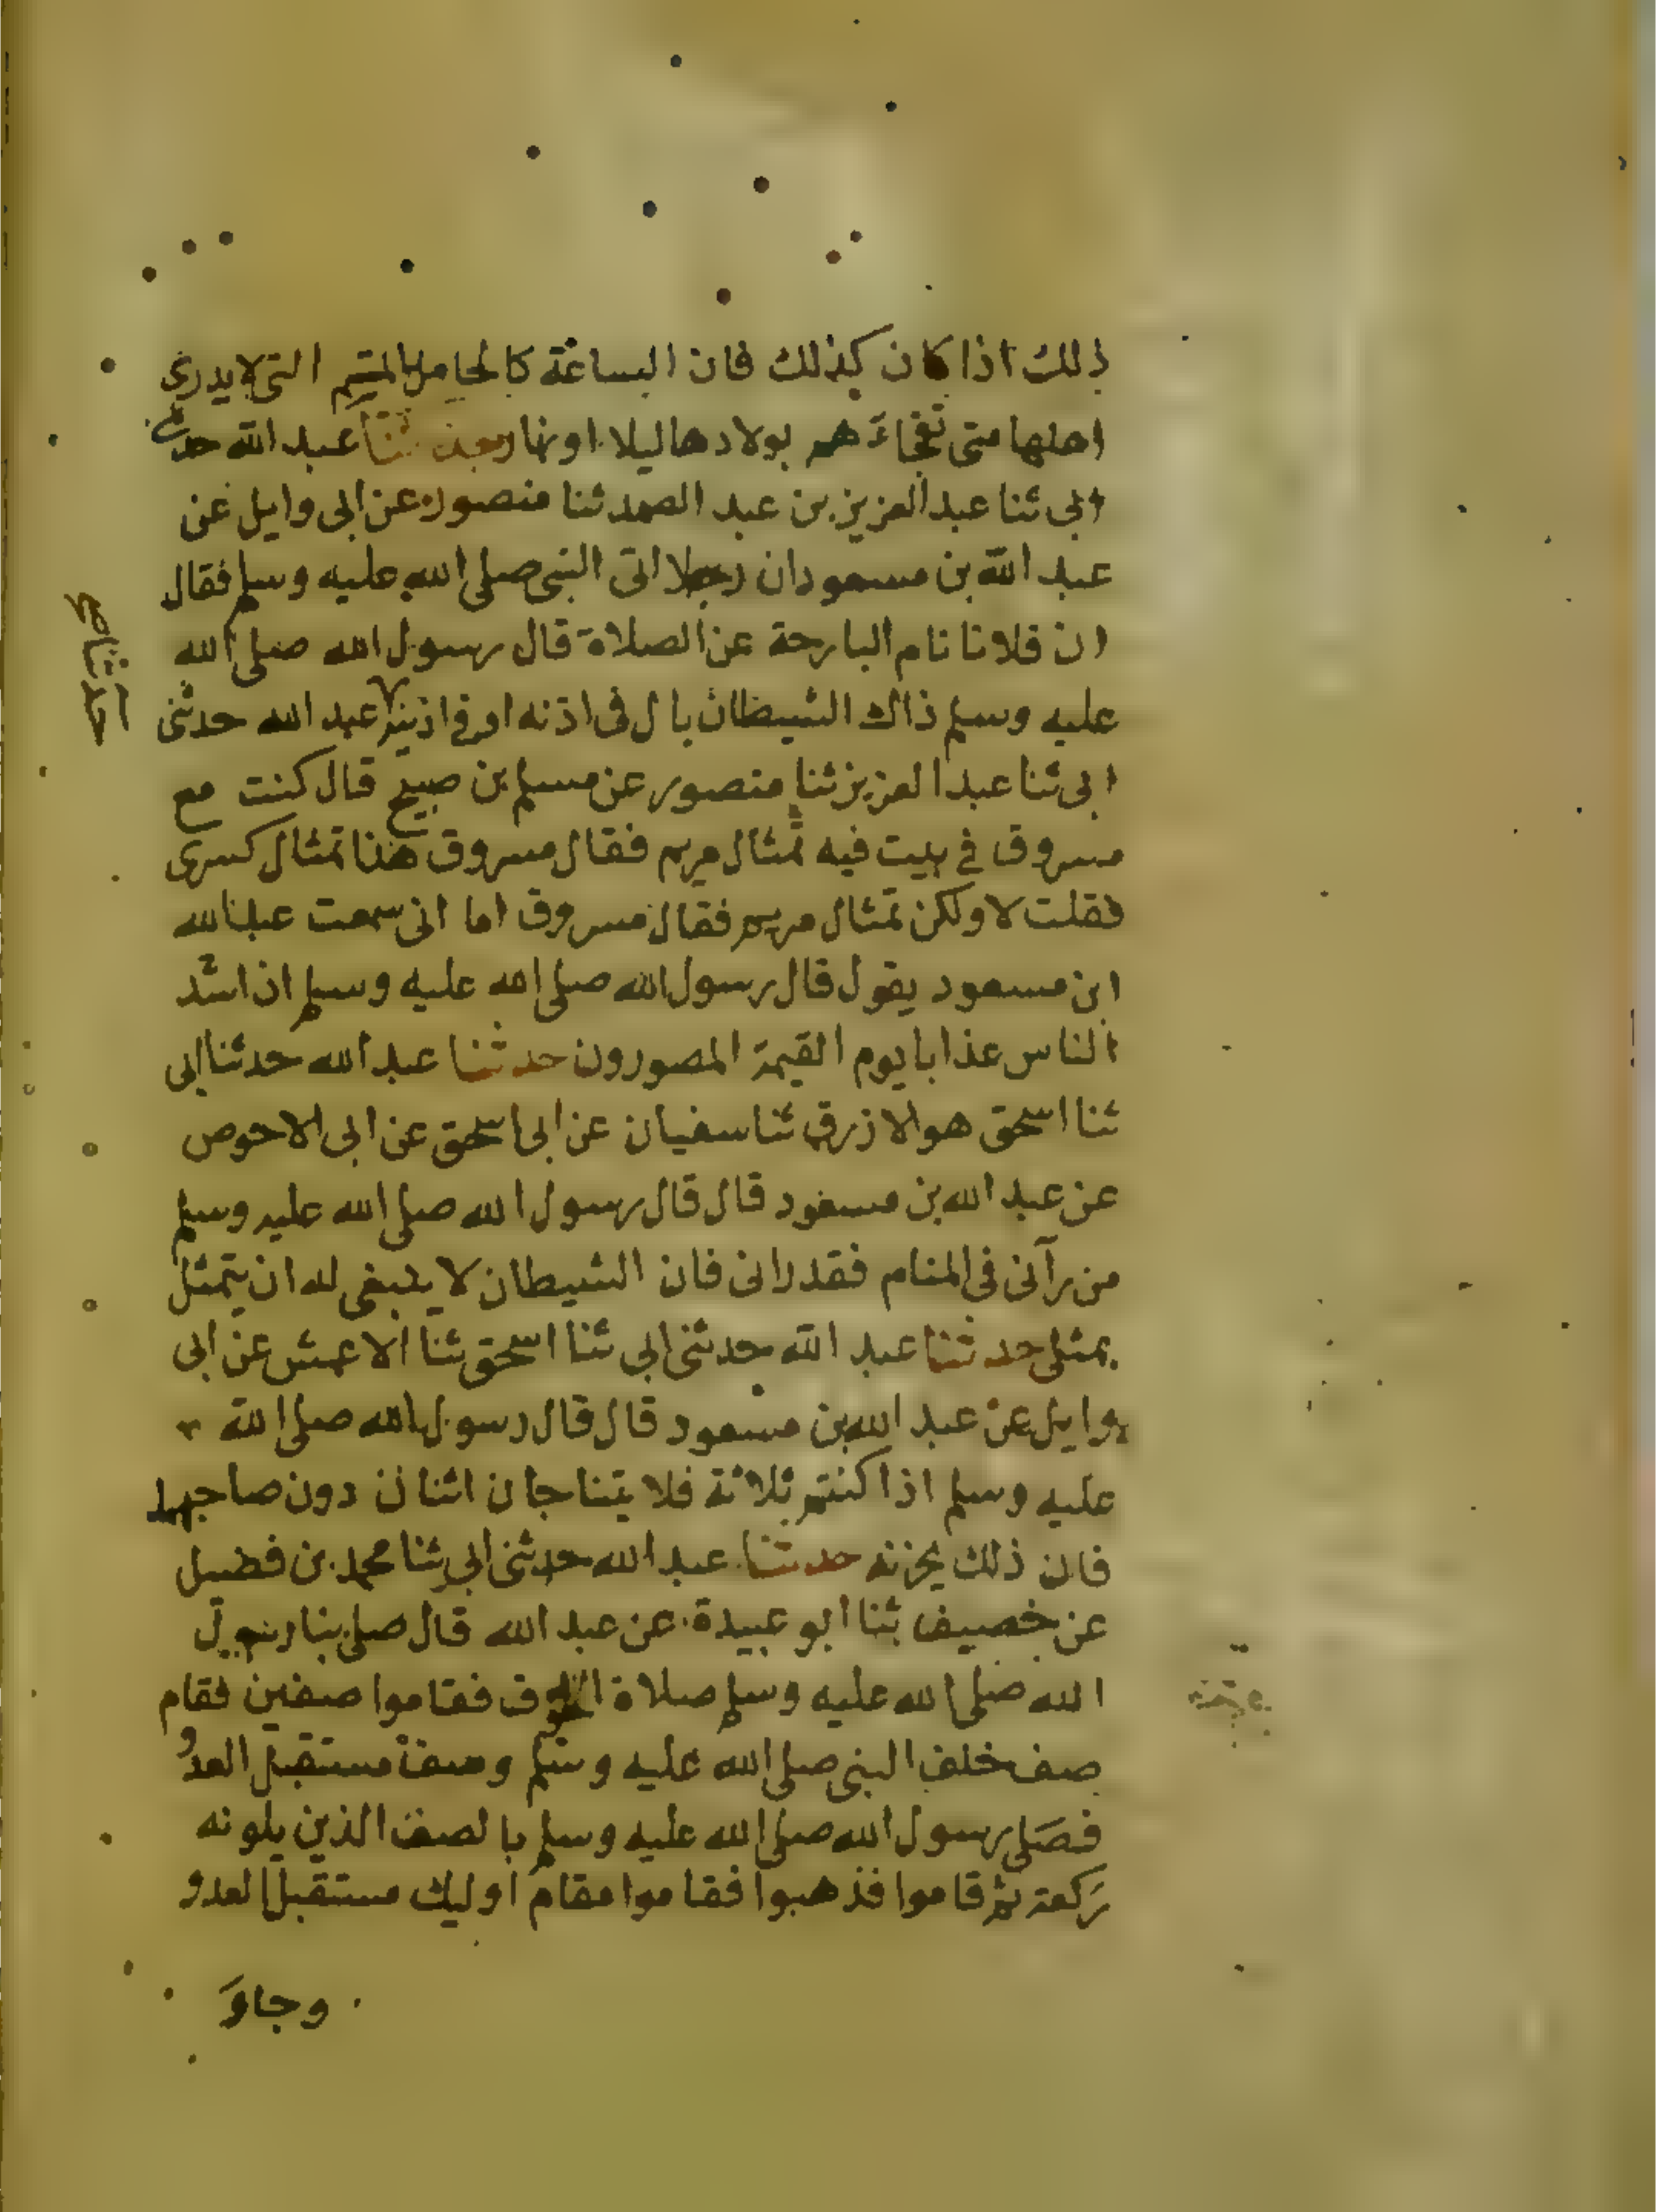 ذلك اذا كان كذلك فان الساعة كالحامل المتم التى لا يدرى
اهلها متى تفجاءهم بولادها ليلا او نهارا حدثنا عبد الله حدثنى
ابى ثنا عبد العزيز بن عبد الصمد ثنا منصور عن ابى وايل عن
عبد الله بن مسعود ان رجلا اتى النبى صلى الله عليه وسلم فقال
ان فلانا نام البارحة عن الصلاة قال رسول الله صلى الله
عليه وسلم ذاك الشيطان بال فى اذنه او فى اذنيه عبد الله حدثنى
حدثنا صح
ابى ثنا عبد العزيز ثنا منصور عن مسلم بن صبيح قال كنت مع
مسروق فى بيت فيه تمثال مريم فقال مسروق هذا تمثال كسرى
فقلت لا ولكن تمثال مريم فقال مسروق اما انى سمعت عبد الله
ابن مسعود يقول قال رسول الله صلى الله عليه وسلم ان اشد
الناس عذابا يوم القيمة المصورون حدثنا عبد الله حدثنا ابى
ثنا اسحق هو الازرق ثنا سفيان عن ابى اسحق عن ابى الاحوص
عن عبد الله بن مسعود قال قال رسول الله صلى الله عليه وسلم
من رآنى فى المنام فقد رانى فان الشيطان لا ينبغى له ان يتمثل
بمثلى حدثنا عبد الله حدثنى ابى ثنا اسحق ثنا الاعمش عن ابى
وايل عن عبد الله بن مسعود قال قال رسول الله صلى الله
عليه وسلم اذا كنتم ثلاثة فلا يتناجان اثنان دون صاحبهما
فان ذلك يحزنه حدثنا عبد الله حدثنى ابى ثنا محمد بن فضيل
عن خصيف ثنا ابو عبيدة عن عبد الله قال صلى بنا رسول
الله صلى الله عليه وسلم صلاة الخوف فقاموا صفين فقام
صف خلف النبى صلى الله عليه وسلم وصف مستقبل العدو
فصَلى رسول الله صلى الله عليه وسلم بالصف الذين يلونه
رَكعة ثم قاموا فذهبوا فقاموا مقام اوليك مستقبل العدو
وجاوَ